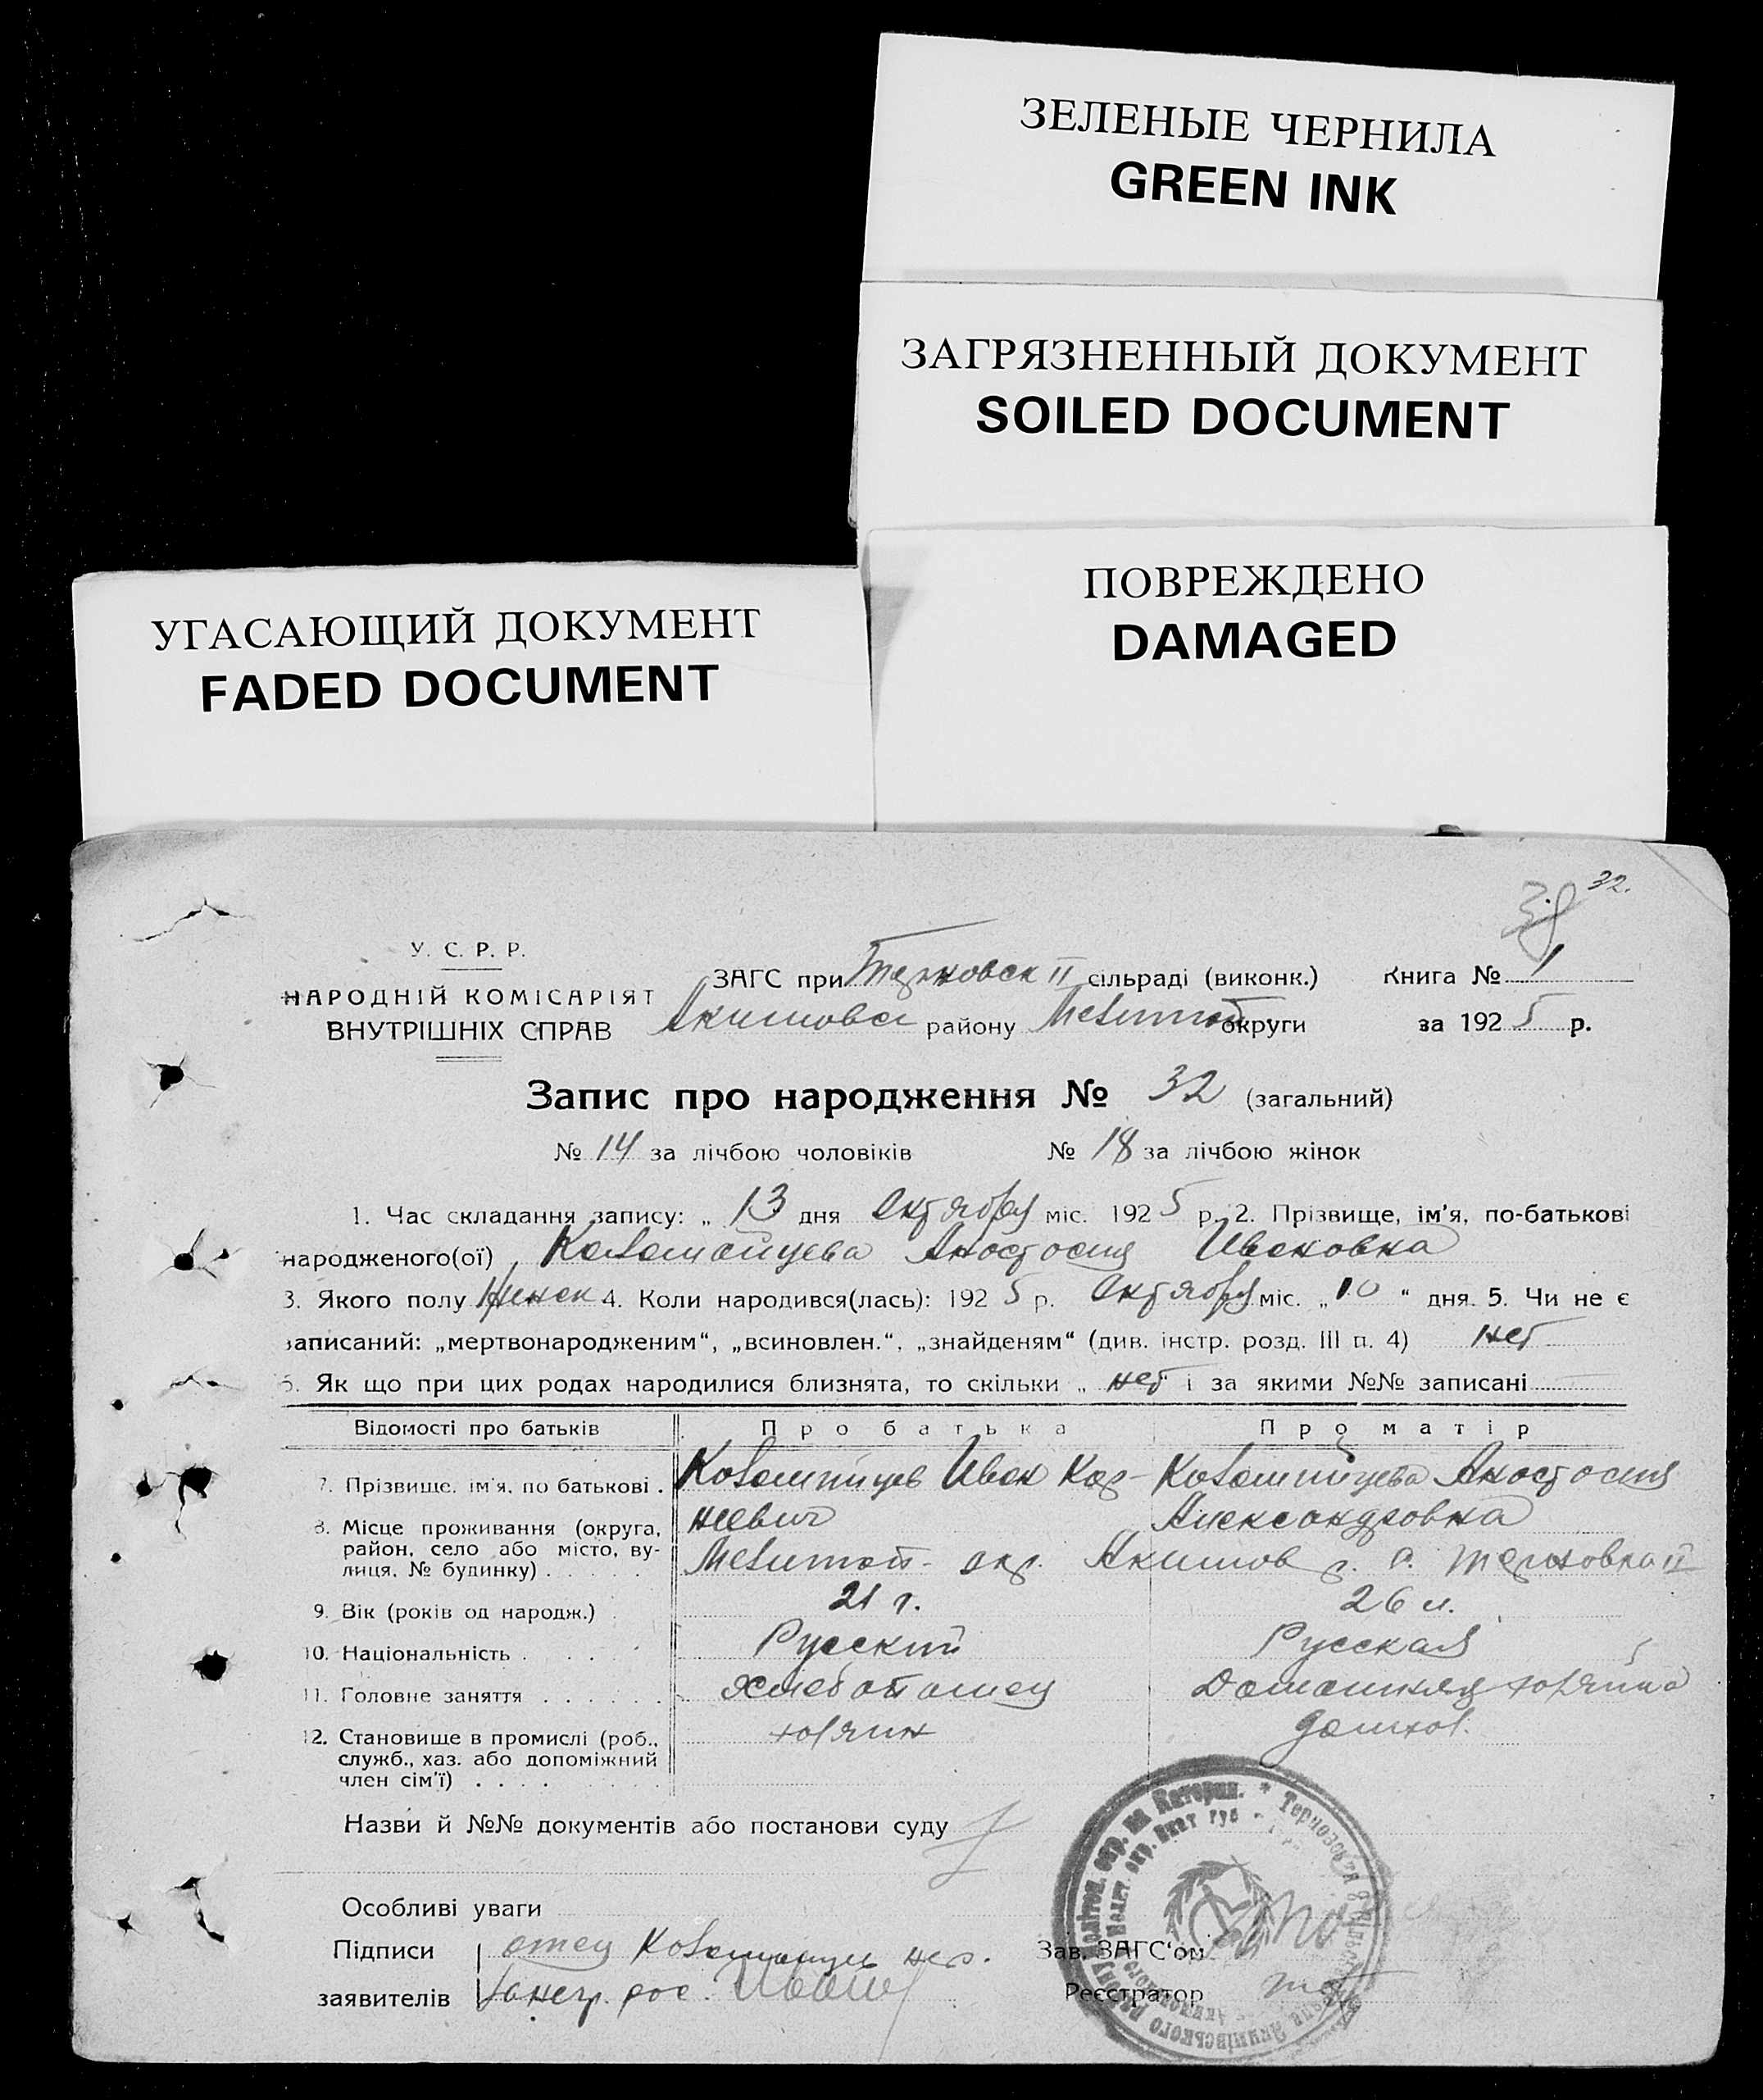 ЗЕЛЕНЫЕ ЧЕРНИЛА
GREEN INK
ЗАГРЯЗНЕННЫЙ ДОКУМЕНТ
SOILED DOCUMENT
ПОВРЕЖДЕНО
DAMAGED
УГАСАЮЩИЙ ДОКУМЕНТ
FADED DOCUMENT
32.
У. С. Р. Р.
НАРОДНІЙ КОМІСАРІЯТ
ВНУТРІШНІХ СПРАВ
ЗАГС при Терновск II сільраді (виконк.) Книга № 1
Акимовск району Мелитоп округи за 1925 р.
Запис про народження № 32 (загальний)
№ 14 за лічбою чоловіків № 18 за лічбою жінок
1. Час складання запису: „ 13 дня Октября міс. 1925 р. 2. Прізвище, ім’я, по-батькові
народженого(ої) Коломойцева Анастасия Ивановна
3. Якого полу Женск 4. Коли народився(лась): 1925 р. Октября міс. „10“ дня. 5. Чи не є
записаний: „мертвонародженим“, „всиновлен.“, „знайденям“ (див. інстр. розд. III п. 4) нет
6. Як що при цих родах народилися близнята, то скільки „ нет і за якими №№ записані
Відомості про батьків Про батька Про матір
7. Прізвище, ім’я, по батькові . Коломийцев Иван Кор- Коломийцева Анастасия
неевич Александровна
8. Місце проживання (округа,
район, село або місто, ву-
лиця, № будинку) . . . . . Мелитоп- окр. Акимов р. с. Терновка II
9. Вік (років од народж.) . 21 г. 26 л.
10. Національність . . . . . Русский Русская
11. Головне заняття . . . . . . Хлебопашец Домашняя хозяйка
12. Становище в промислі (роб.,
служб., хаз. або допоміжний
член сім’ї) . . . . хозяин домхоз.
Назви й №№ документів або постанови суду
Особливі уваги
Підписи отец Коломийцев нег.
заявителів
Зав. ЗАГС‘ом
Реєстратор